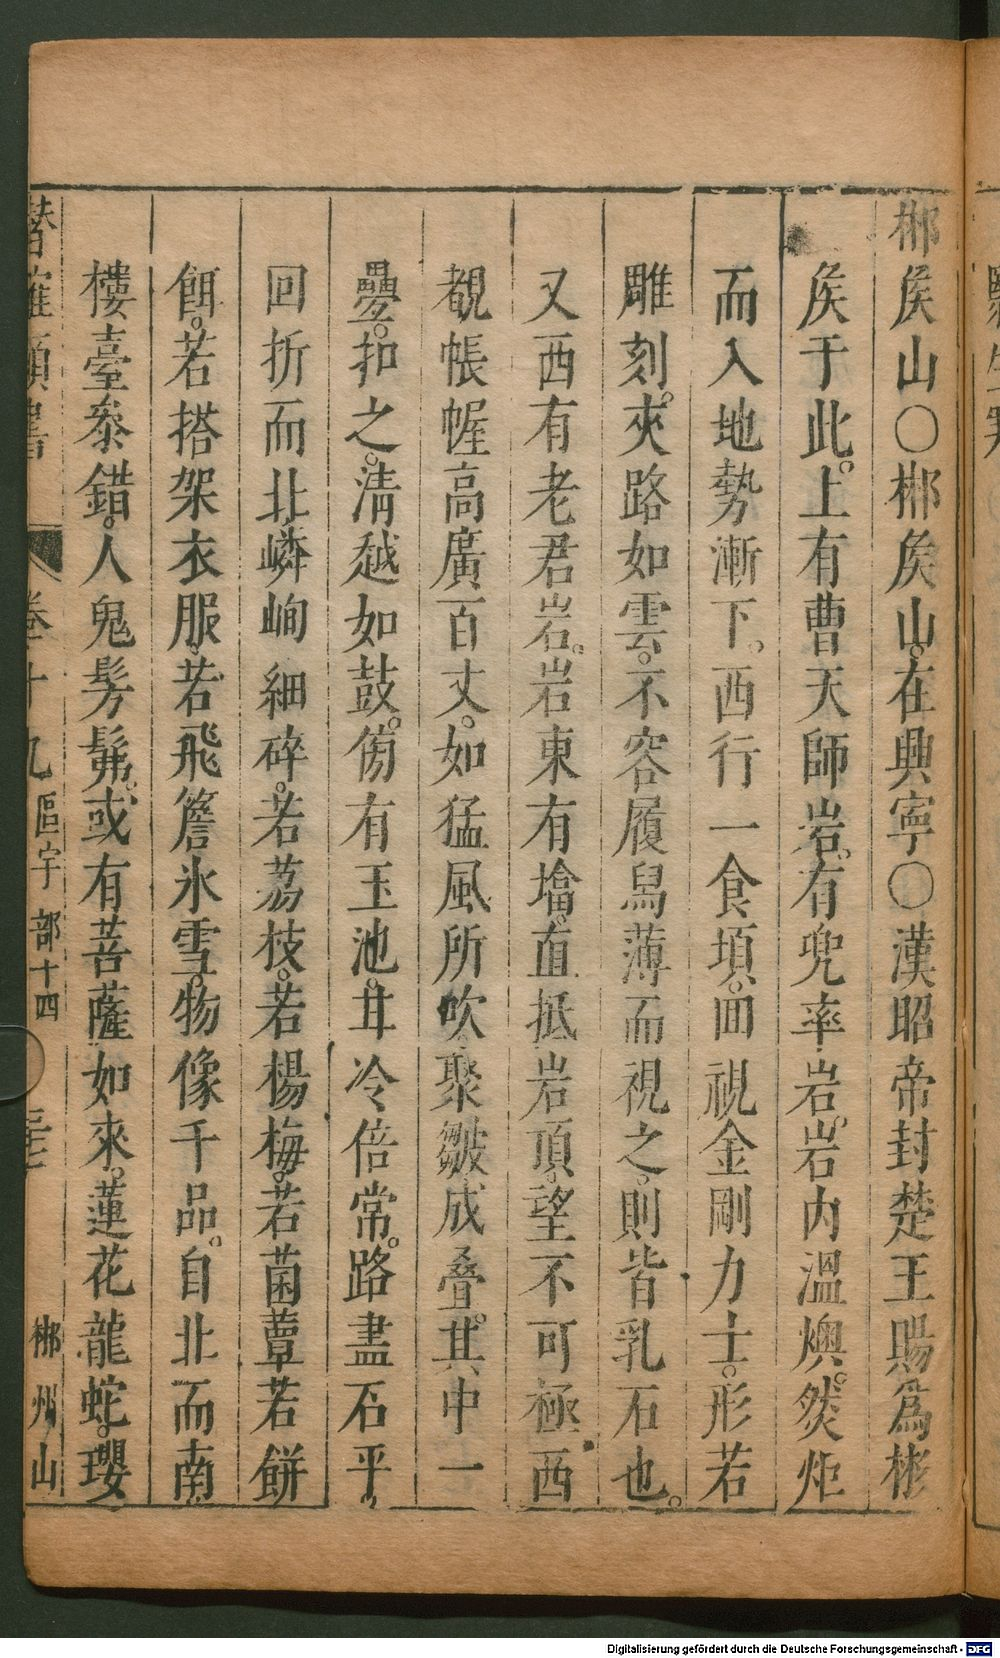 郴矦山〇郴矦山在興寧〇漢昭帝封楚王賜爲彬
矦于此上有曹天師岩有兜率岩岩内溫燠燃炬
而入地勢漸下西行一食頃回視金剛力士形若
雕刻夾路如雲不容履舄薄而視之則皆乳石也
又西有老君岩岩東有墖直抵岩頂望不可極西
覩帳幄高廣百丈如猛風所吹聚皺成叠其中一
疊扣之淸越如鼓傍有玉池甘冷倍常路盡石平
回折而北嶙峋細碎若荔枝若楊梅若菌蕈若餅
餌若搭架衣服若飛簷氷雪物像千品自北而南
樓臺叅錯人鬼髣髴或有菩薩如來蓮花龍蛇瓔
潛確類書 卷十九 區宇部十四 郴州山
Digitalisierung gefördert durch die Deutsche Forschungsgemeinschaft - DFG